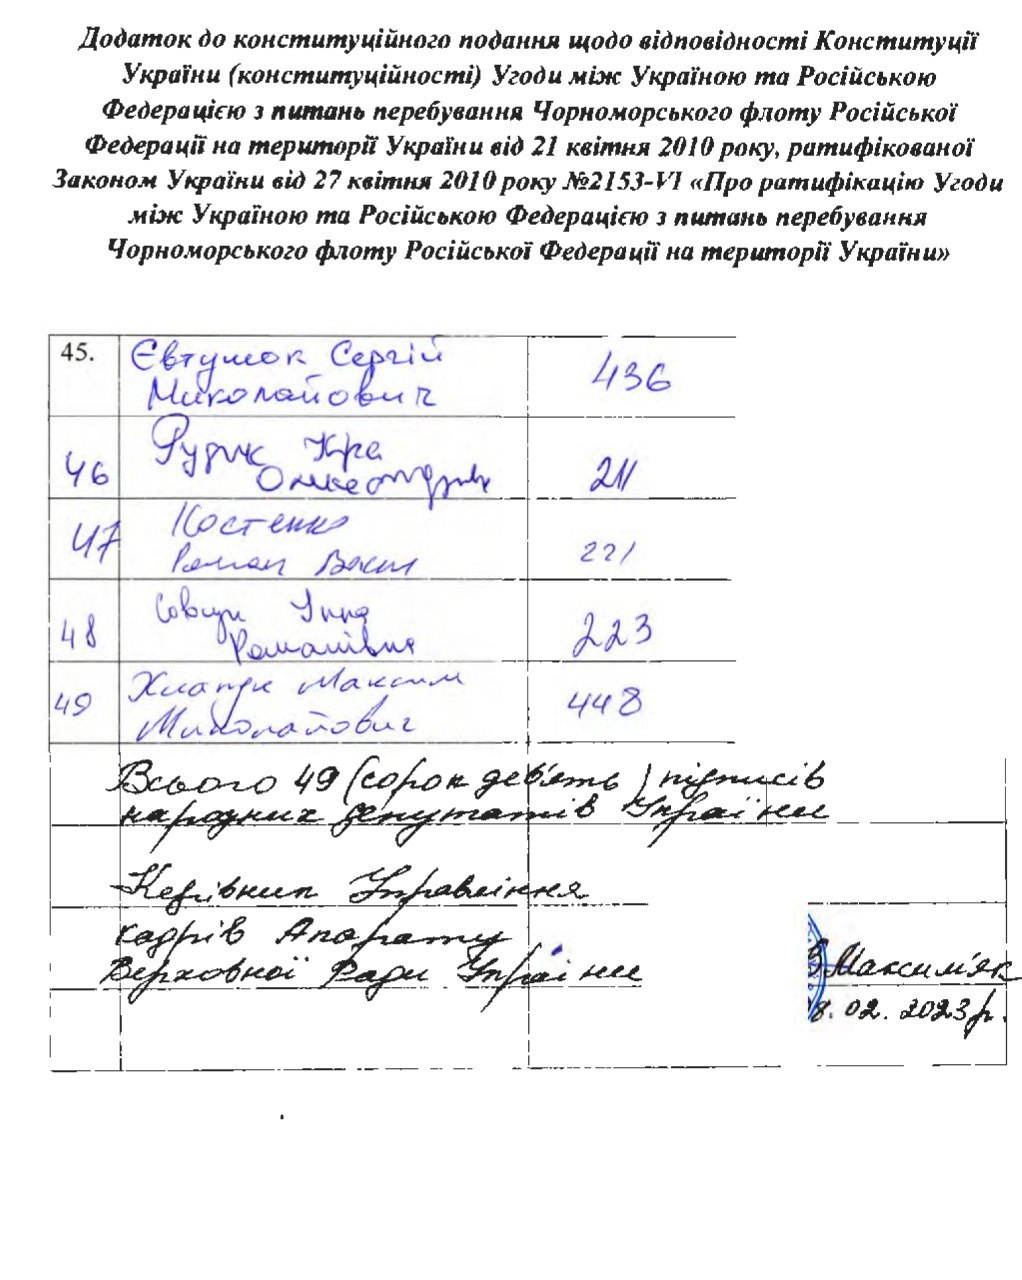 Додаток до конституційного подання щодо відповідності Конституції
України (конституційності) Угоди між Україною та Російською
Федерацією з питань перебування Чорноморського флоту Російської
Федерації на території України від 21 квітня 2010 року, ратифікованої
Законом України від 27 квітня 2010 року №2153-VI «Про ратифікацію Угоди
між Україною та Російською Федерацією з питань перебування
Чорноморського флоту Російської Федерації на території України»
45. Євтушок Сергій
Миколайович 436
46 Рудик Кіра
Олександрівн 211
47 Костенко
Роман Васил 221
48 Совсун Інна
Романівна 223
49 Хлапук Максим
Миколайович 448
Всього 49 (сорок дев'ять) підписів
народних депутатів України
Керівник Управління
кадрів Апарату
Верховної Ради України
Максим'як
8.02.2023р.